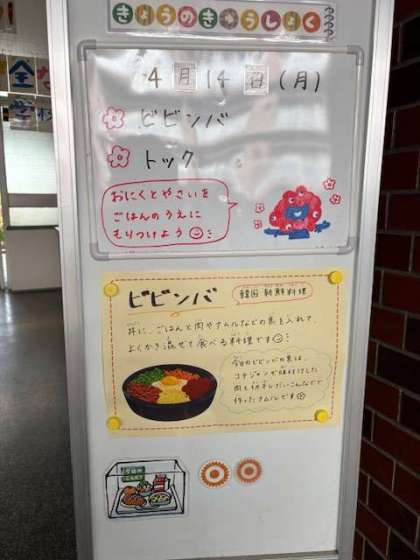 きょうのきゅうしょく
4月14日(月)
ビビンバ
トック
おにくとやさいを
ごはんのうえに
もりつけよう
ビビンバ
韓国 朝鮮料理
丼に、ごはんと肉やナムルなどの具を入れて、
よくかき混ぜて食べる料理です
今日のビビンバの具は、
コチジャンで味付けした
肉と切干しだいこんなどで
作ったナムルです